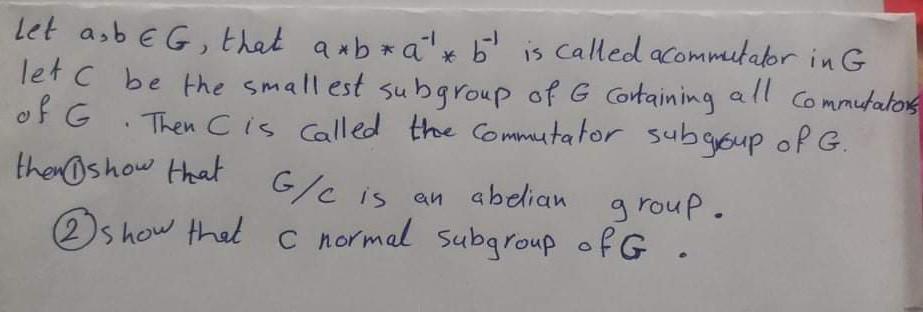 Let a,b ∈ G, that a*b*a⁻¹*b⁻¹ is called a commutator in G
let C be the smallest subgroup of G Containing all Commutators
of G . Then C is Called the Commutator subgroup of G.
then ① show that G/C is an abelian group.
② show that C normal subgroup of G .